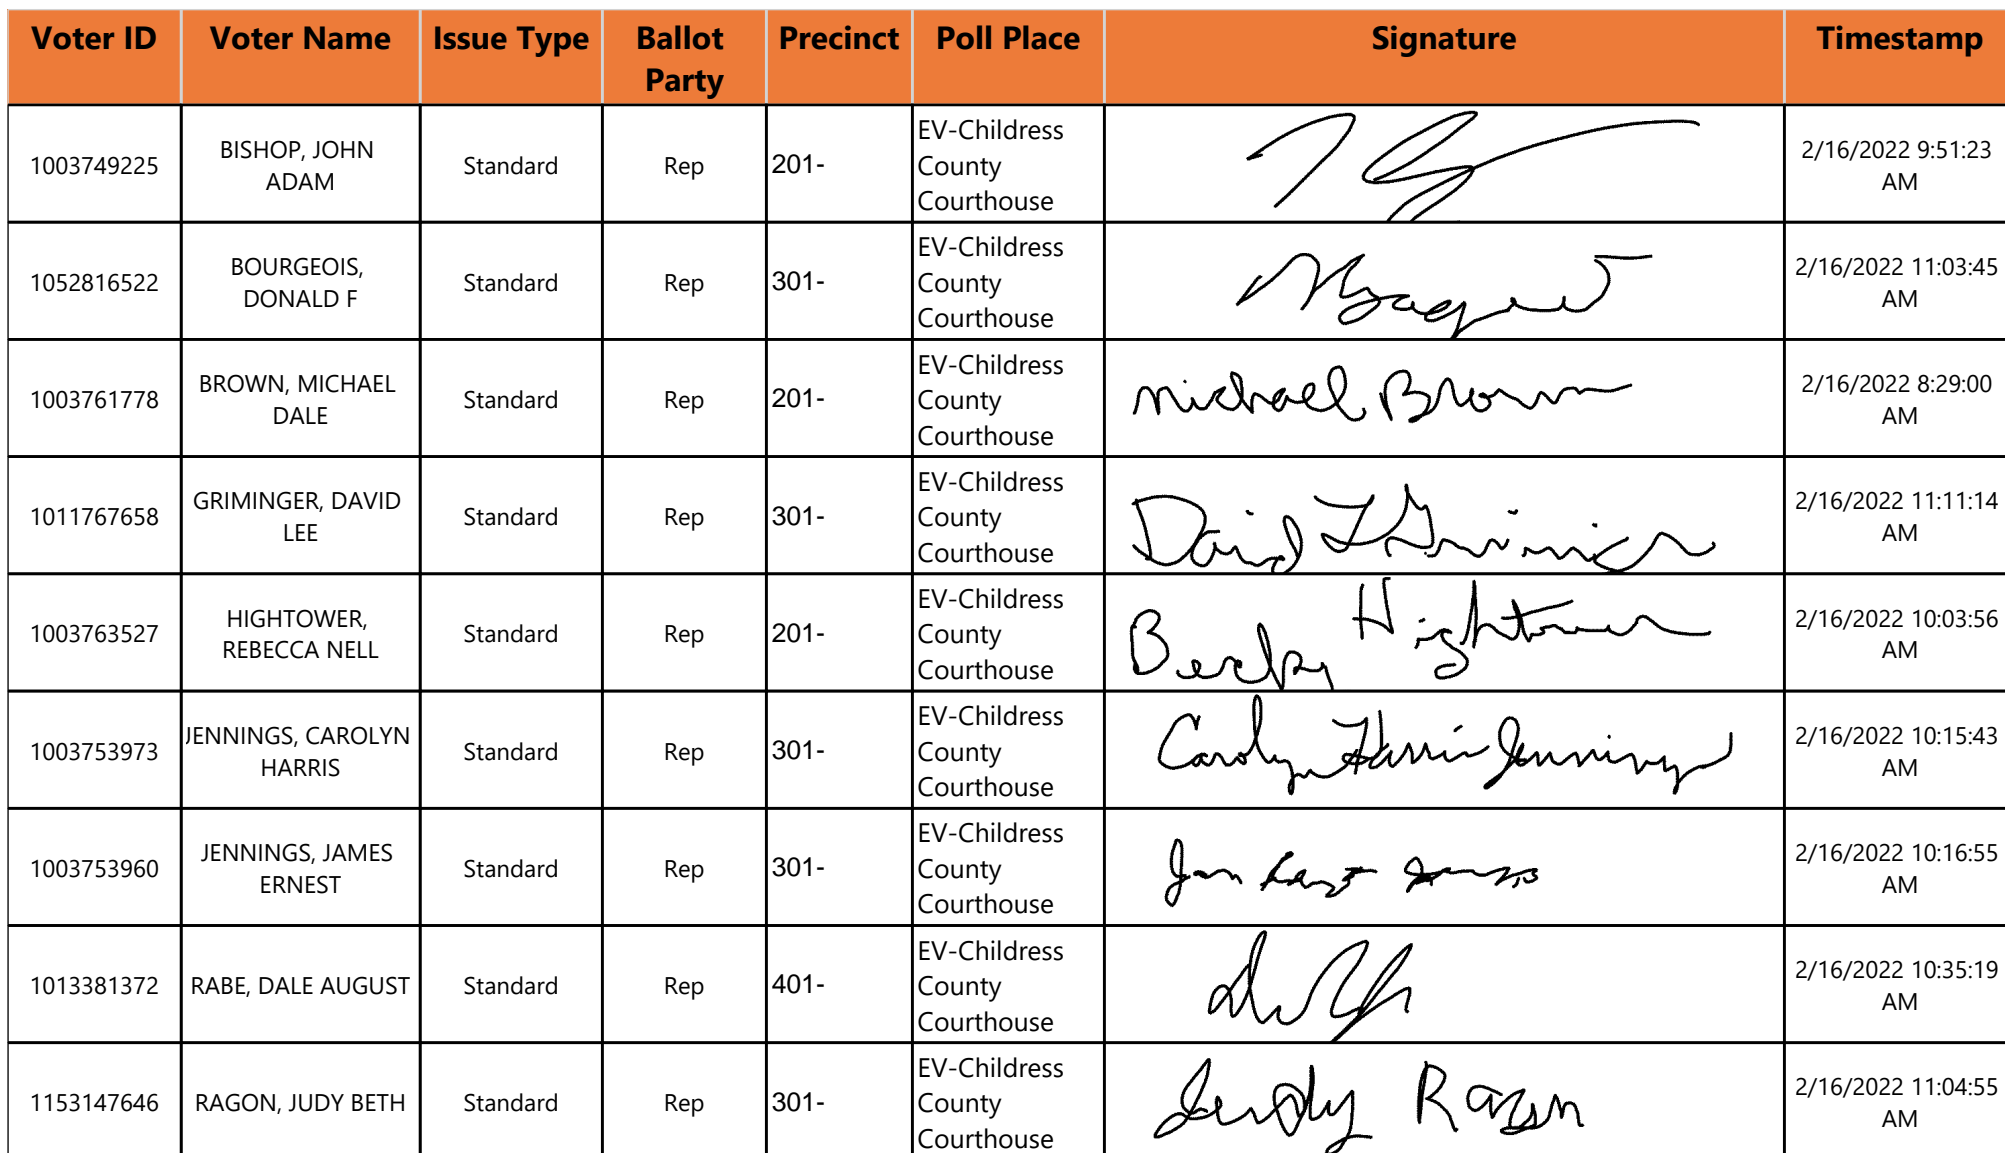 Voter ID Voter Name Issue Type Ballot Party Precinct Poll Place Signature Timestamp
1003749225 BISHOP, JOHN ADAM Standard Rep 201- EV-Childress County Courthouse 2/16/2022 9:51:23 AM
1052816522 BOURGEOIS, DONALD F Standard Rep 301- EV-Childress County Courthouse 2/16/2022 11:03:45 AM
1003761778 BROWN, MICHAEL DALE Standard Rep 201- EV-Childress County Courthouse Michael Brown 2/16/2022 8:29:00 AM
1011767658 GRIMINGER, DAVID LEE Standard Rep 301- EV-Childress County Courthouse David L 2/16/2022 11:11:14 AM
1003763527 HIGHTOWER, REBECCA NELL Standard Rep 201- EV-Childress County Courthouse Becky Hightower 2/16/2022 10:03:56 AM
1003753973 JENNINGS, CAROLYN HARRIS Standard Rep 301- EV-Childress County Courthouse Carolyn Harris Jennings 2/16/2022 10:15:43 AM
1003753960 JENNINGS, JAMES ERNEST Standard Rep 301- EV-Childress County Courthouse 2/16/2022 10:16:55 AM
1013381372 RABE, DALE AUGUST Standard Rep 401- EV-Childress County Courthouse 2/16/2022 10:35:19 AM
1153147646 RAGON, JUDY BETH Standard Rep 301- EV-Childress County Courthouse Judy Ragon 2/16/2022 11:04:55 AM